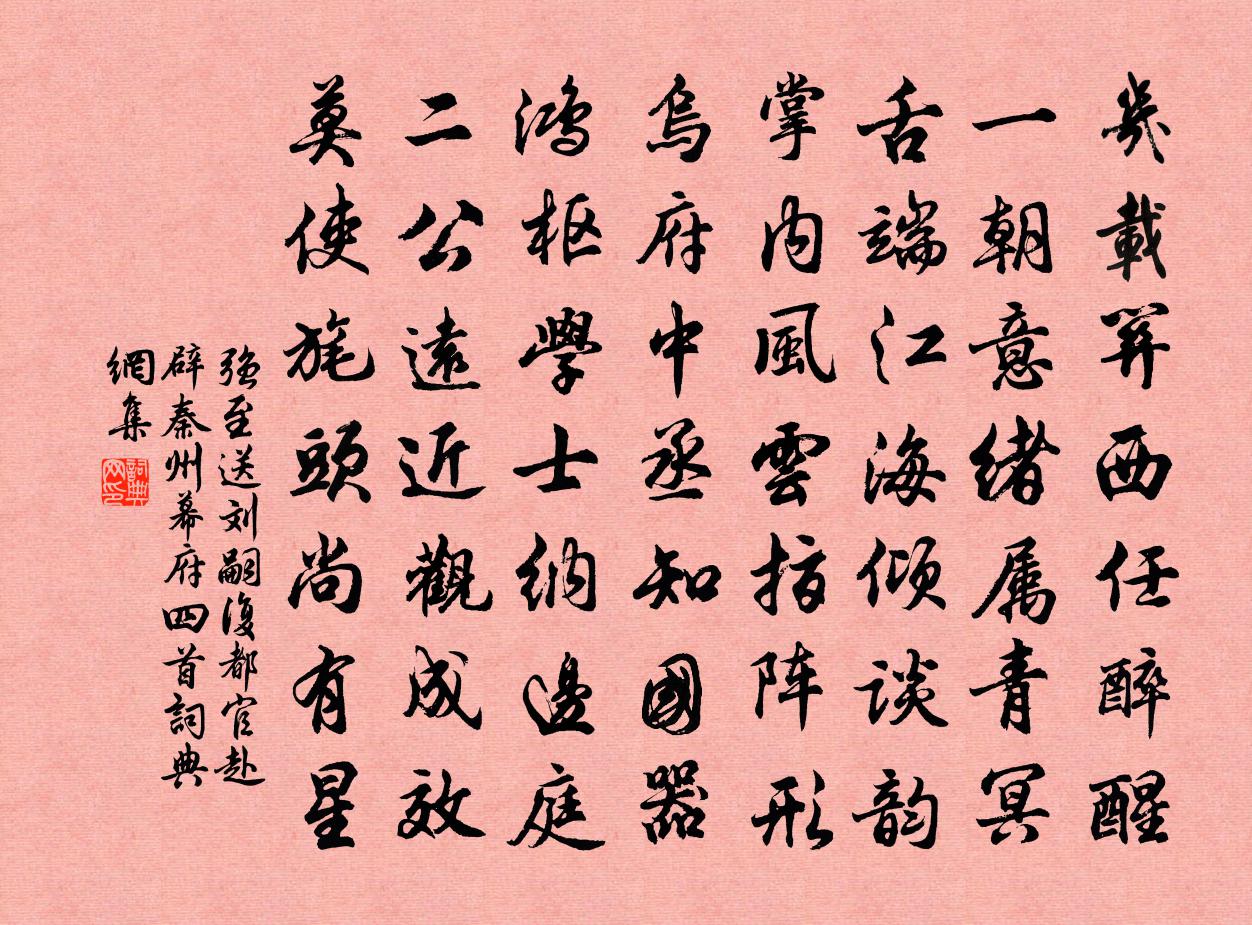 幾載并西任醉醒
一朝意緒属青冥
舌端江海倾谈韵
掌内風雲指阵形
烏府中丞知國器
鸿枢學士纳邊庭
二公遠近觀成效
莫使旄頭尚有星
强至送刘嗣復都官赴
辟秦州幕府四首詞典
網集
詞典
网印